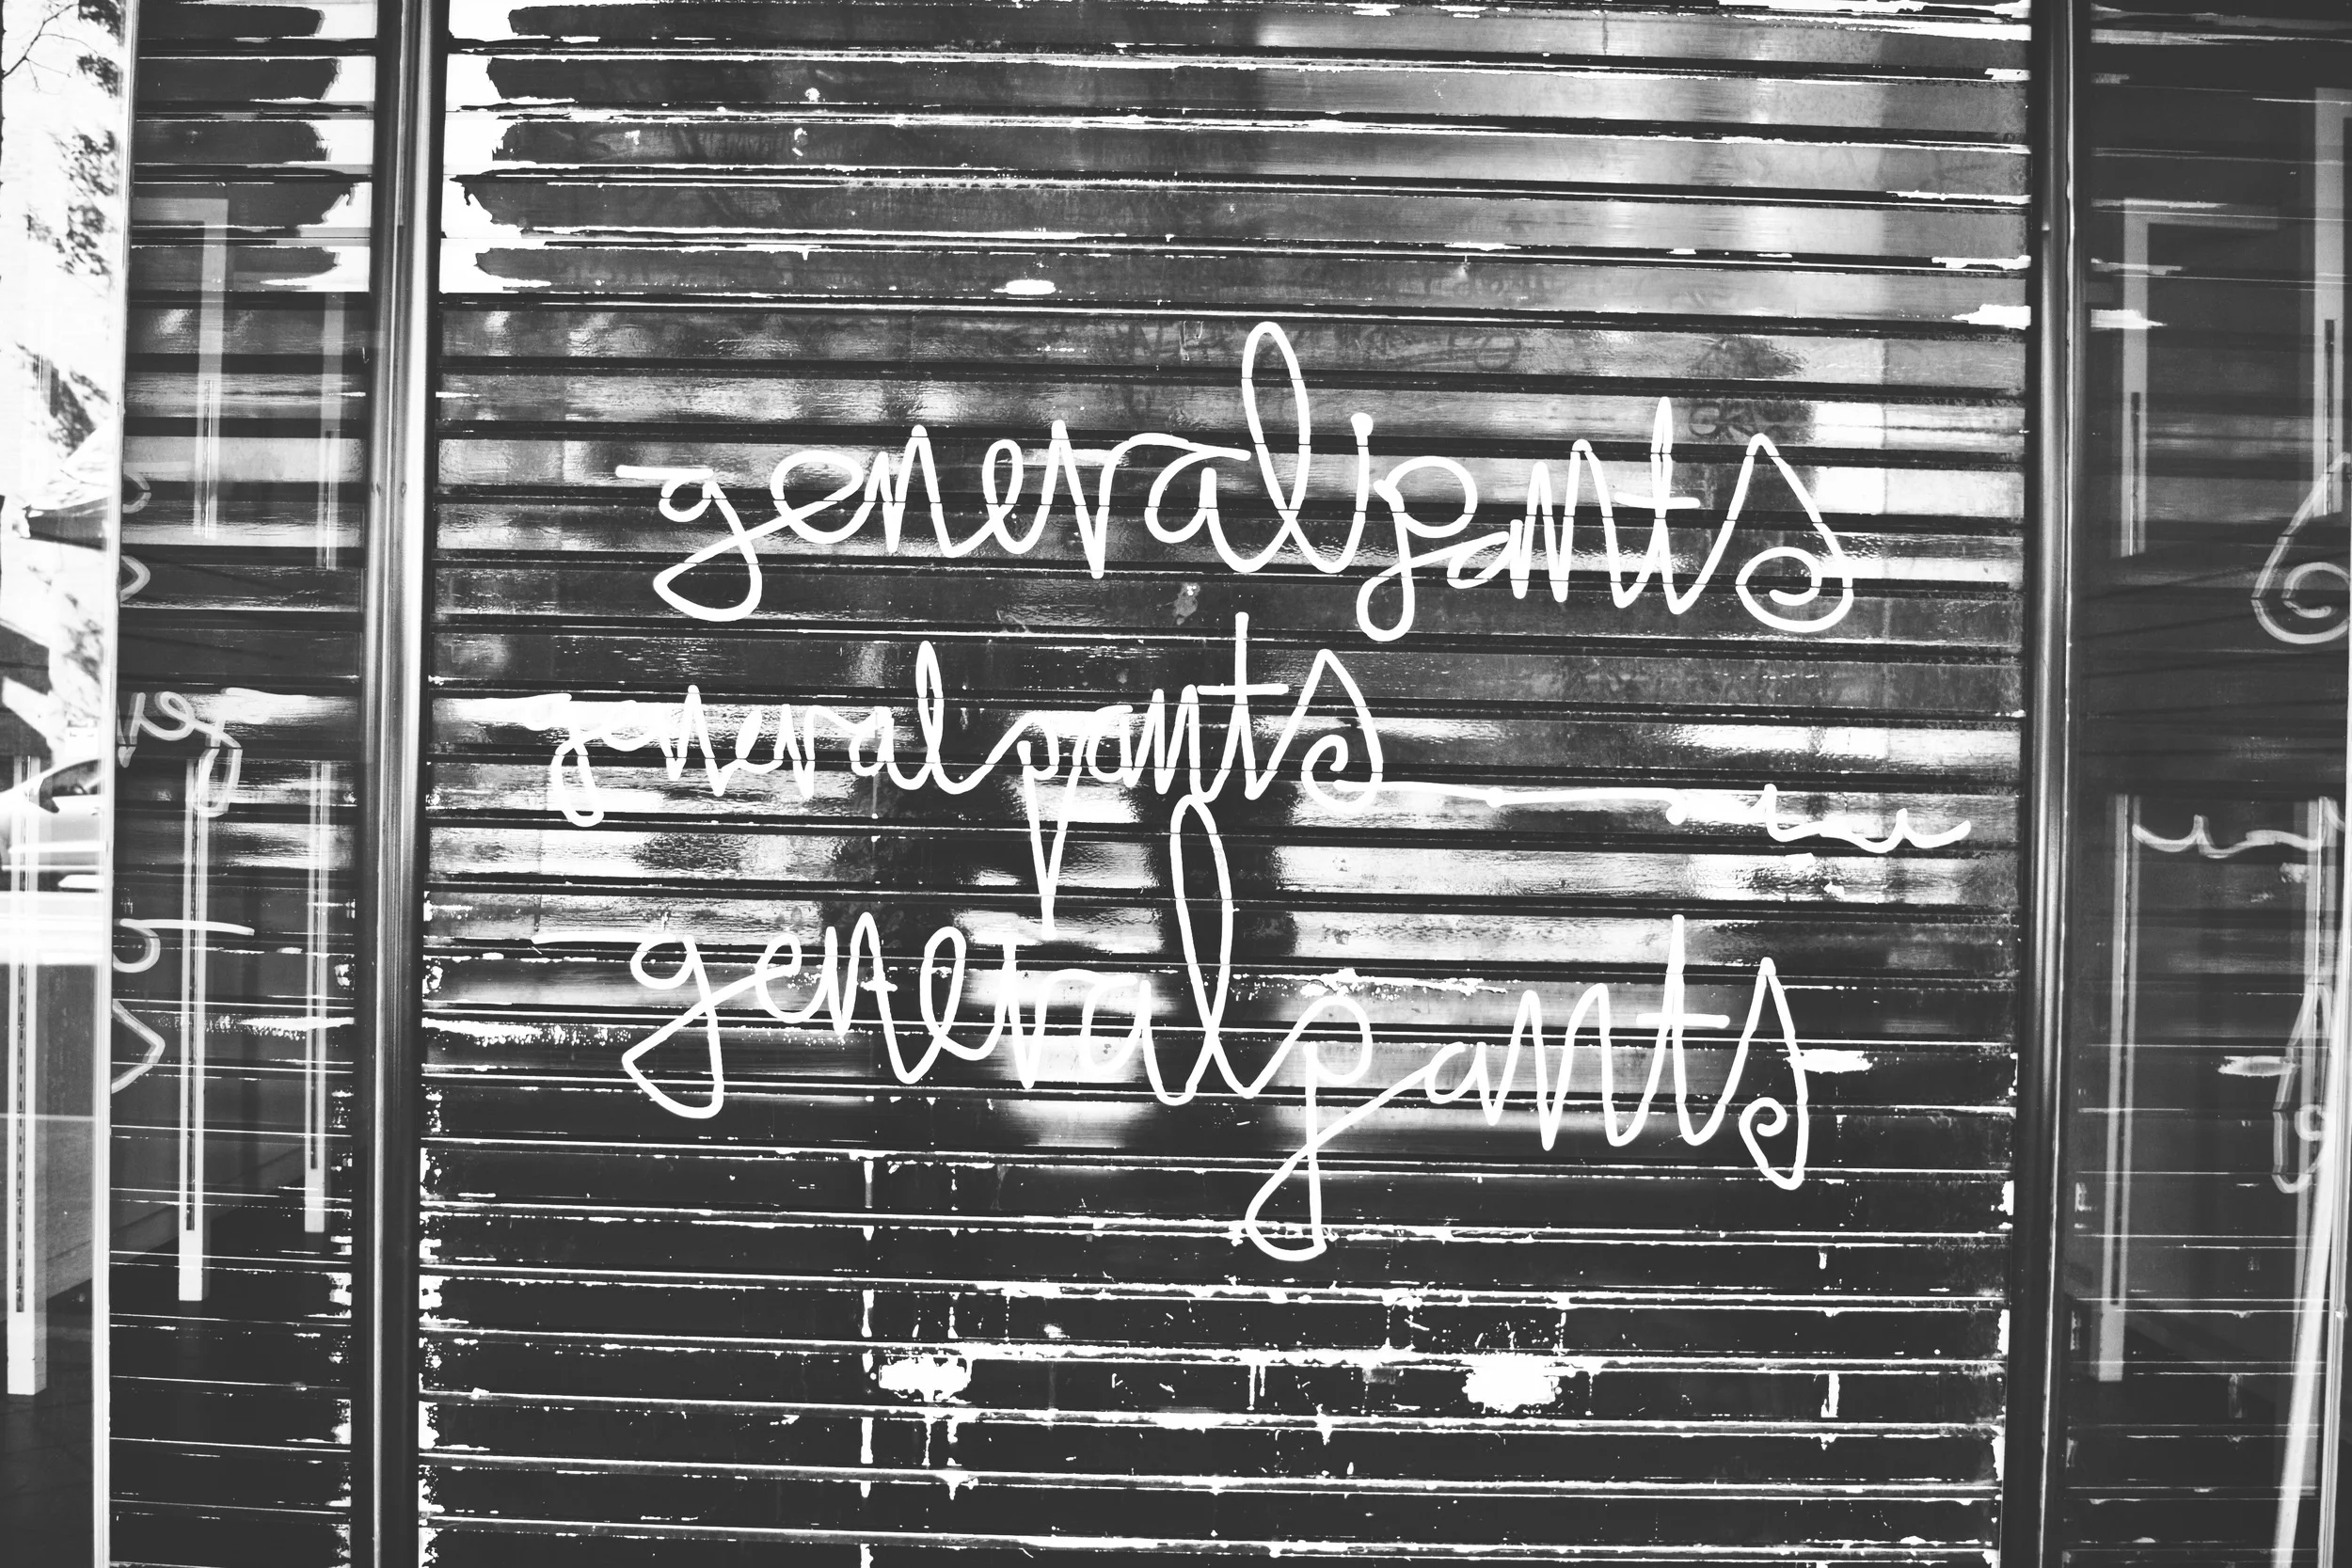 general pants
general pants
general pants